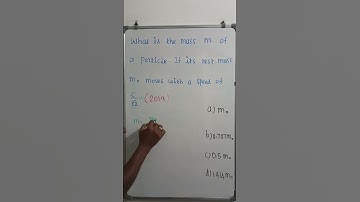 What is the mass m of
a particle. If its rest mass
m₀ moves with a speed of
c/√2 (2019)
m
a) m₀
b) 0.707m₀
c) 0.5 m₀
d) 1.414m₀